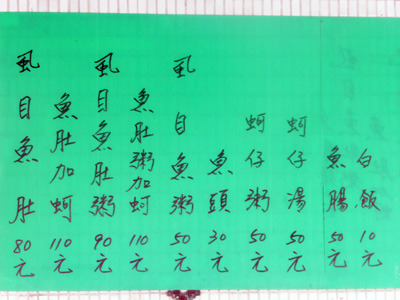 虱目魚肚80元
魚肚加蚵110元
虱目魚肚粥90元
魚肚粥加蚵110元
虱目魚粥50元
魚頭30元
蚵仔粥50元
蚵仔湯50元
魚腸50元
白飯10元